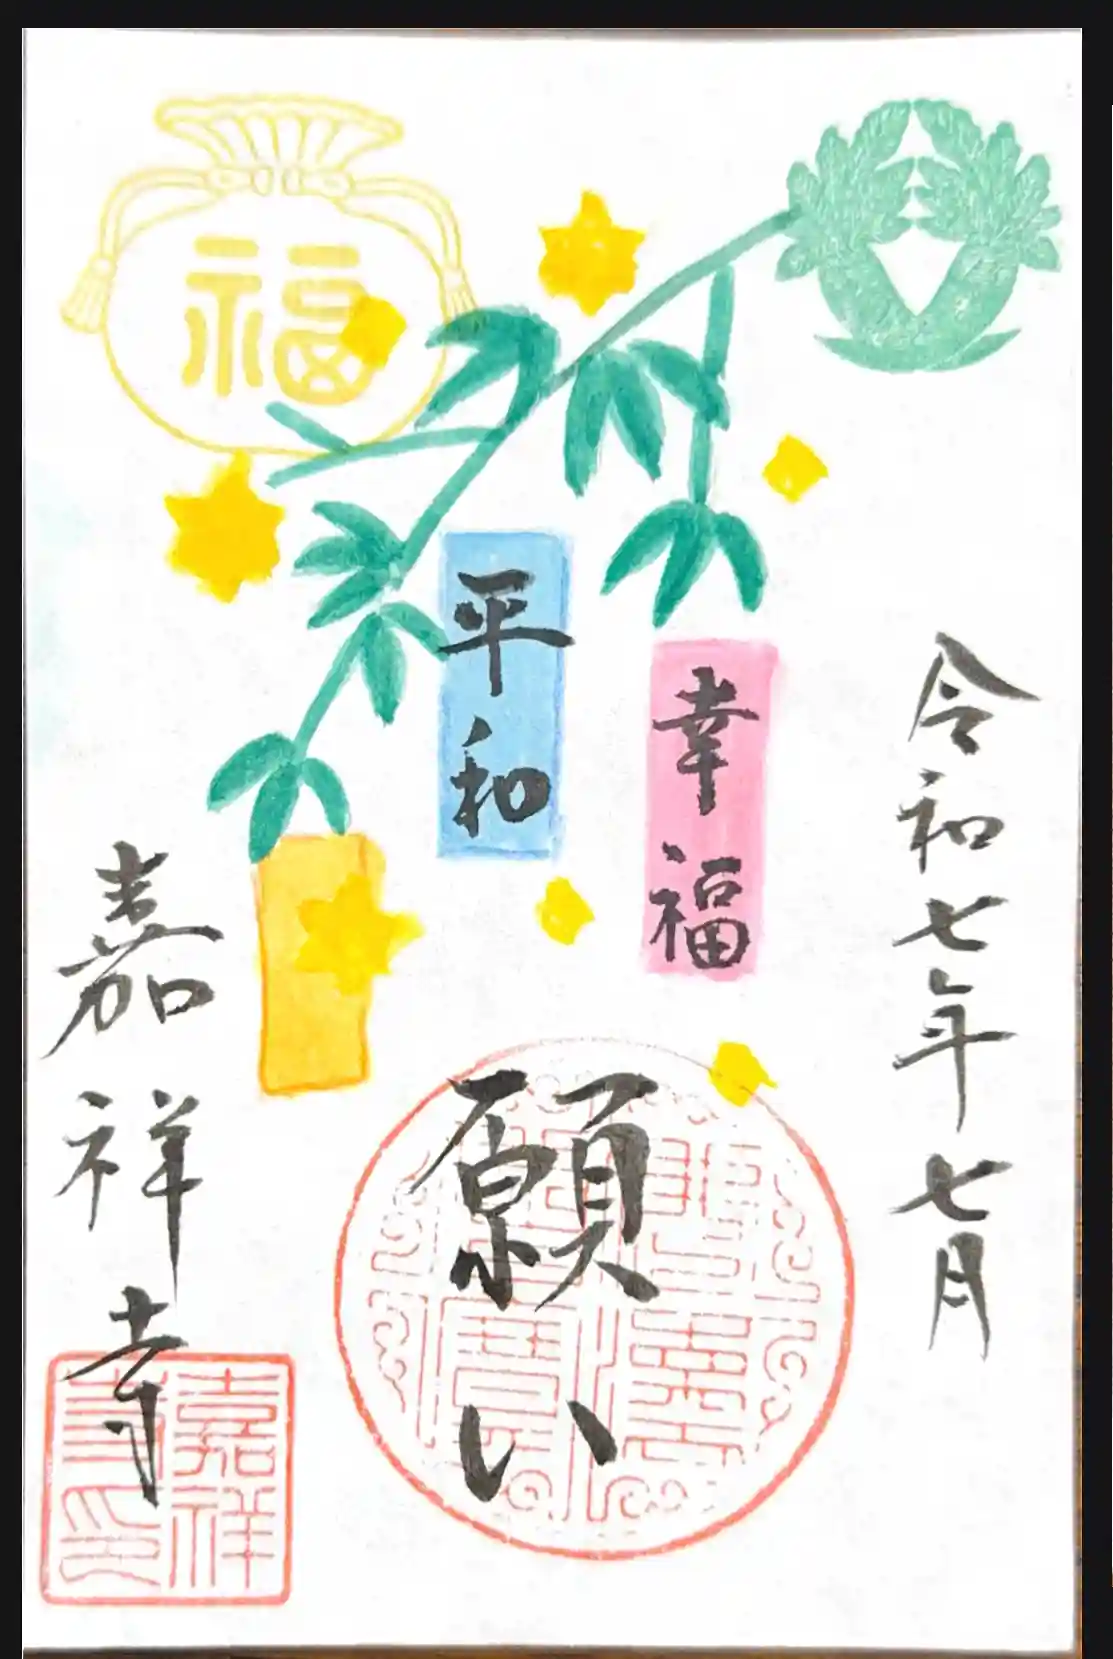 令和七年七月
幸福
平和
願い
福
嘉祥寺
嘉祥
寺印